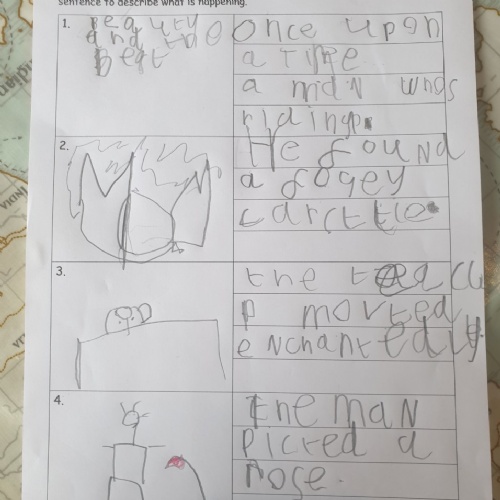 sentence to describe what is happening.
1.
Beauty
and the
beast
once upon
a time
a man was
riding.
2.
He found
a fogey
carctle
3.
the teacu
p movted
enchantedly
4.
the man
picted a
rose.